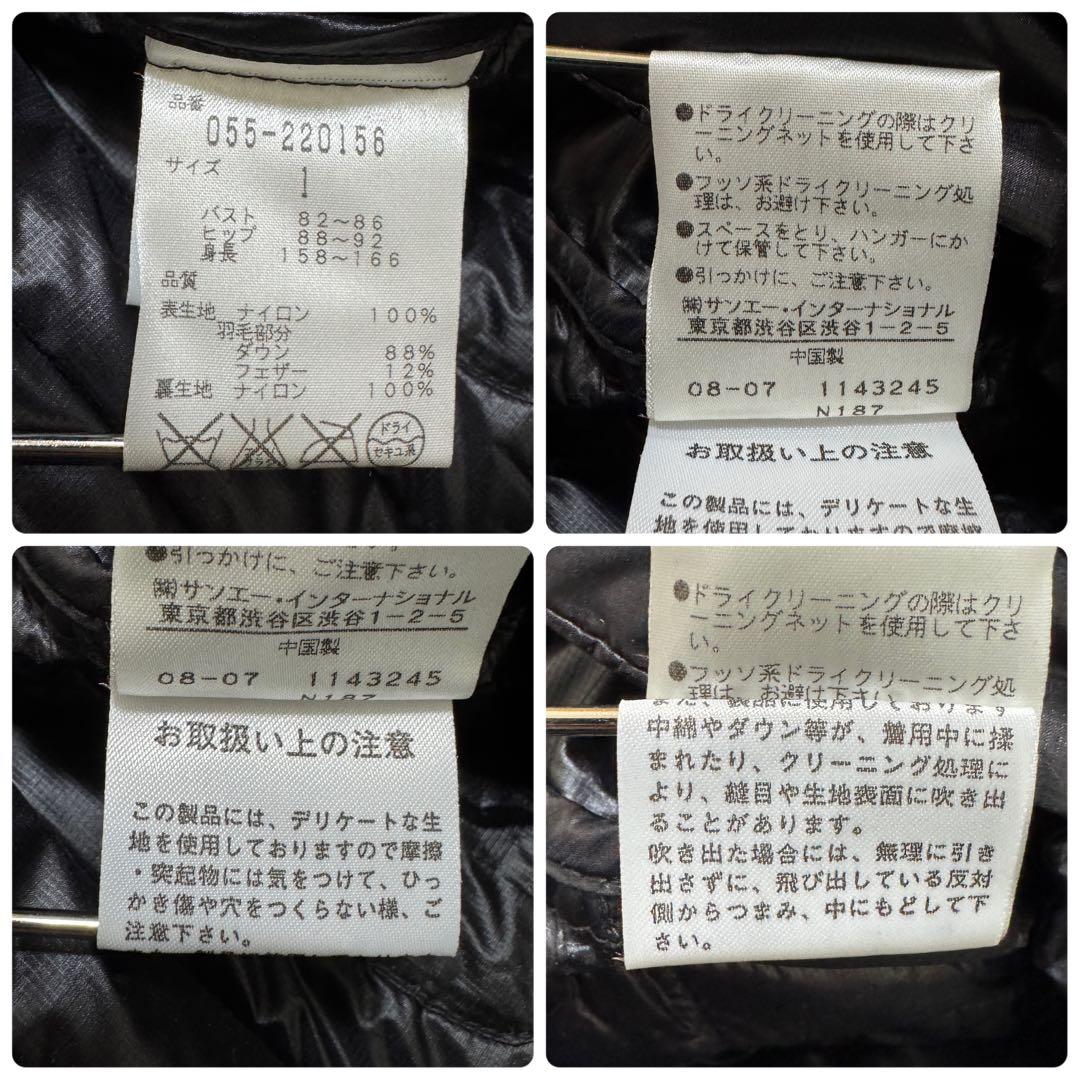 品番
055-220156
サイズ
1
バスト 82～86
ヒップ 88～92
身長 158～166
品質
表生地 ナイロン 100%
羽毛部分
ダウン 88%
フェザー 12%
裏生地 ナイロン 100%
ドライ
セキユ系
●ドライクリーニングの際はクリ
ーニングネットを使用して下さ
い。
●フッソ系ドライクリーニング処
理は、お避け下さい。
●スペースをとり、ハンガーにか
けて保管して下さい。
●引っかけに、ご注意下さい。
㈱サンエー・インターナショナル
東京都渋谷区渋谷1-2-5
中国製
08-07 1143245
N187
お取扱い上の注意
この製品には、デリケートな生
地を使用しておりますので摩擦
●引っかけに、ご注意下さい。
㈱サンエー・インターナショナル
東京都渋谷区渋谷1-2-5
中国製
08-07 1143245
N187
お取扱い上の注意
この製品には、デリケートな生
地を使用しておりますので摩擦
・突起物には気をつけて、ひっ
かき傷や穴をつくらない様、ご
注意下さい。
●ドライクリーニングの際はクリ
ーニングネットを使用して下さ
い。
●フッソ系ドライクリーニング処
理は、お避け下さい。
また、製品に使用しております
中綿やダウン等が、着用中に揉
まれたり、クリーニング処理に
より、縫目や生地表面に吹き出
ることがあります。
吹き出た場合には、無理に引き
出さずに、飛び出している反対
側からつまみ、中にもどして下
さい。